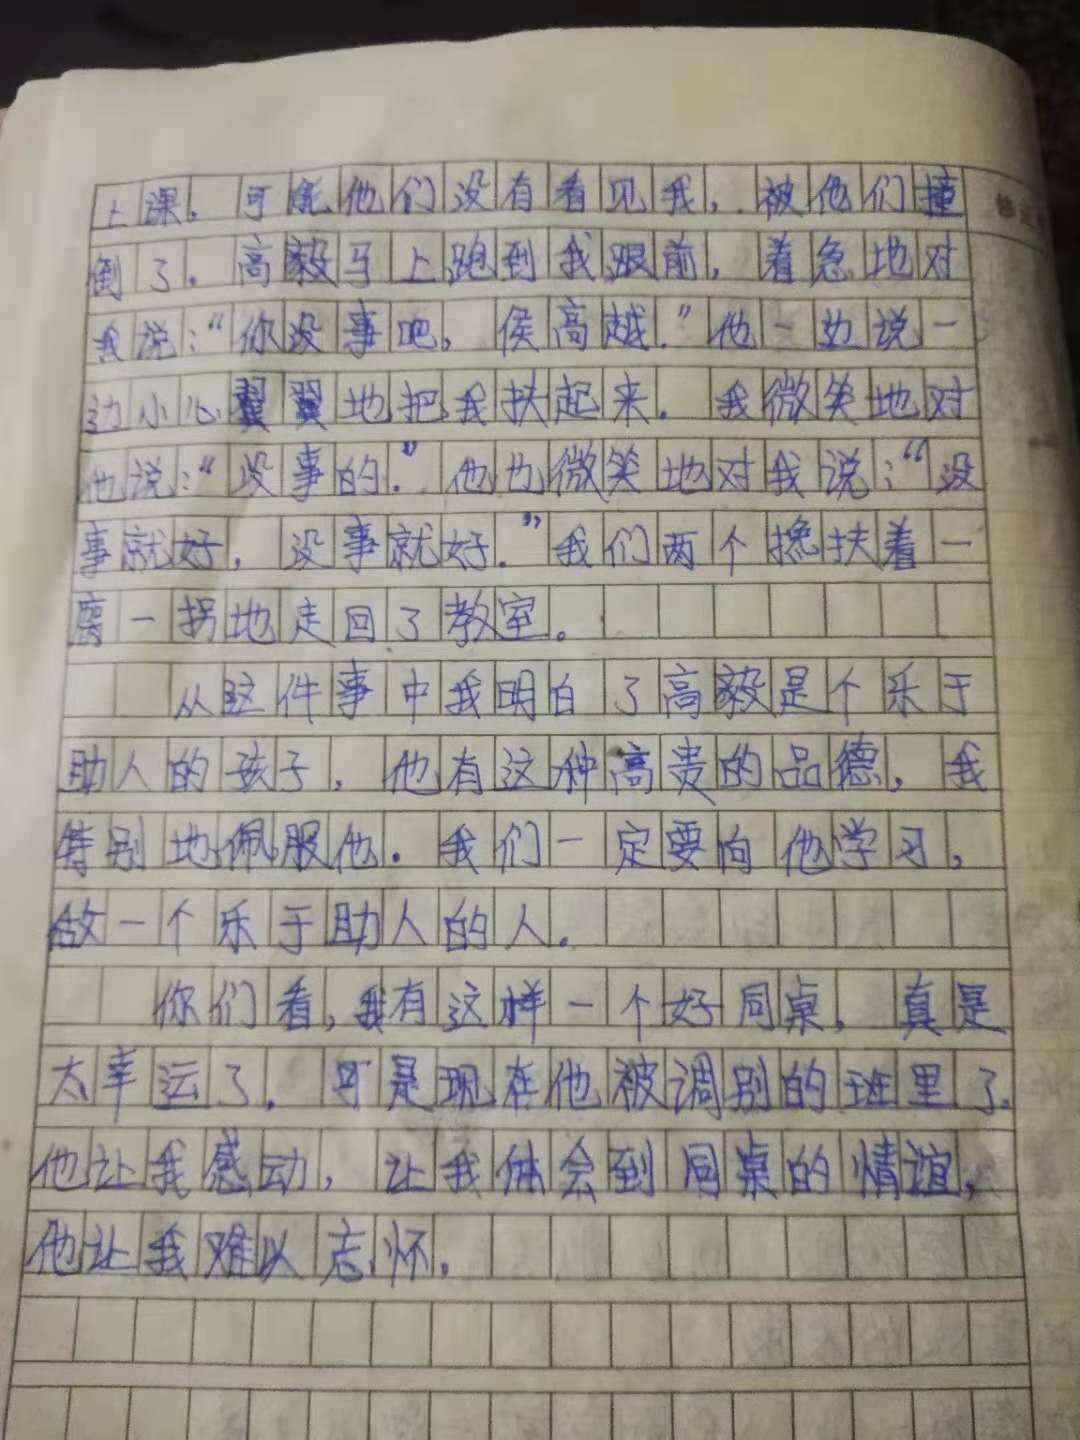 上课，可能他们没有看见我，被他们撞
倒了．高毅马上跑到我跟前，着急地对
我说：“你没事吧，侯高越．”他一边说一
边小心翼翼地把我扶起来．我微笑地对
他说：“没事的．”他也微笑地对我说：“没
事就好，没事就好．”我们两个搀扶着一
离一拐地走回了教室。
从这件事中我明白了高毅是个乐于
助人的孩子，他有这种高贵的品德，我
特别地佩服他．我们一定要向他学习，
做一个乐于助人的人．
你们看，我有这样一个好同桌，真是
太幸运了．可是现在他被调别的班里了．
他让我感动，让我体会到同桌的情谊，
他让我难以忘怀．